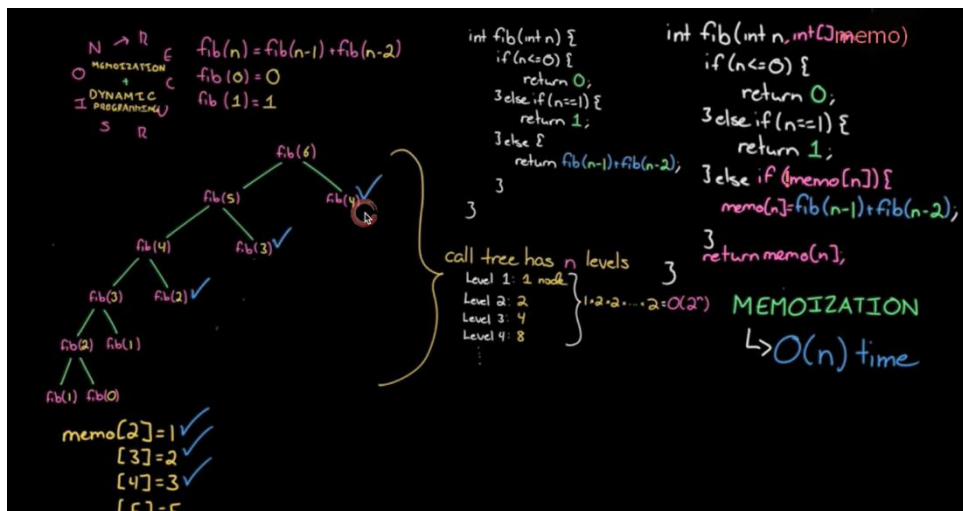 RECURSION
MEMOIZATION
+
DYNAMIC
PROGRAMMING
fib(n)=fib(n-1)+fib(n-2)
fib(0)=0
fib(1)=1
fib(6)
fib(5) fib(4)
fib(4) fib(3)
fib(3) fib(2)
fib(2) fib(1)
fib(1) fib(0)
memo[2]=1
[3]=2
[4]=3
[5]=5
int fib(int n) {
if(n<=0) {
return 0;
}else if(n==1) {
return 1;
}else {
return fib(n-1)+fib(n-2);
}
}
call tree has n levels
Level 1: 1 node
Level 2: 2
Level 3: 4
Level 4: 8
⋮
1·2·2·...·2=O(2ⁿ)
int fib(int n, int[] memo)
if(n<=0) {
return 0;
}else if(n==1) {
return 1;
}else if(!memo[n]) {
memo[n]=fib(n-1)+fib(n-2);
}
return memo[n];
}
MEMOIZATION
↳O(n) time